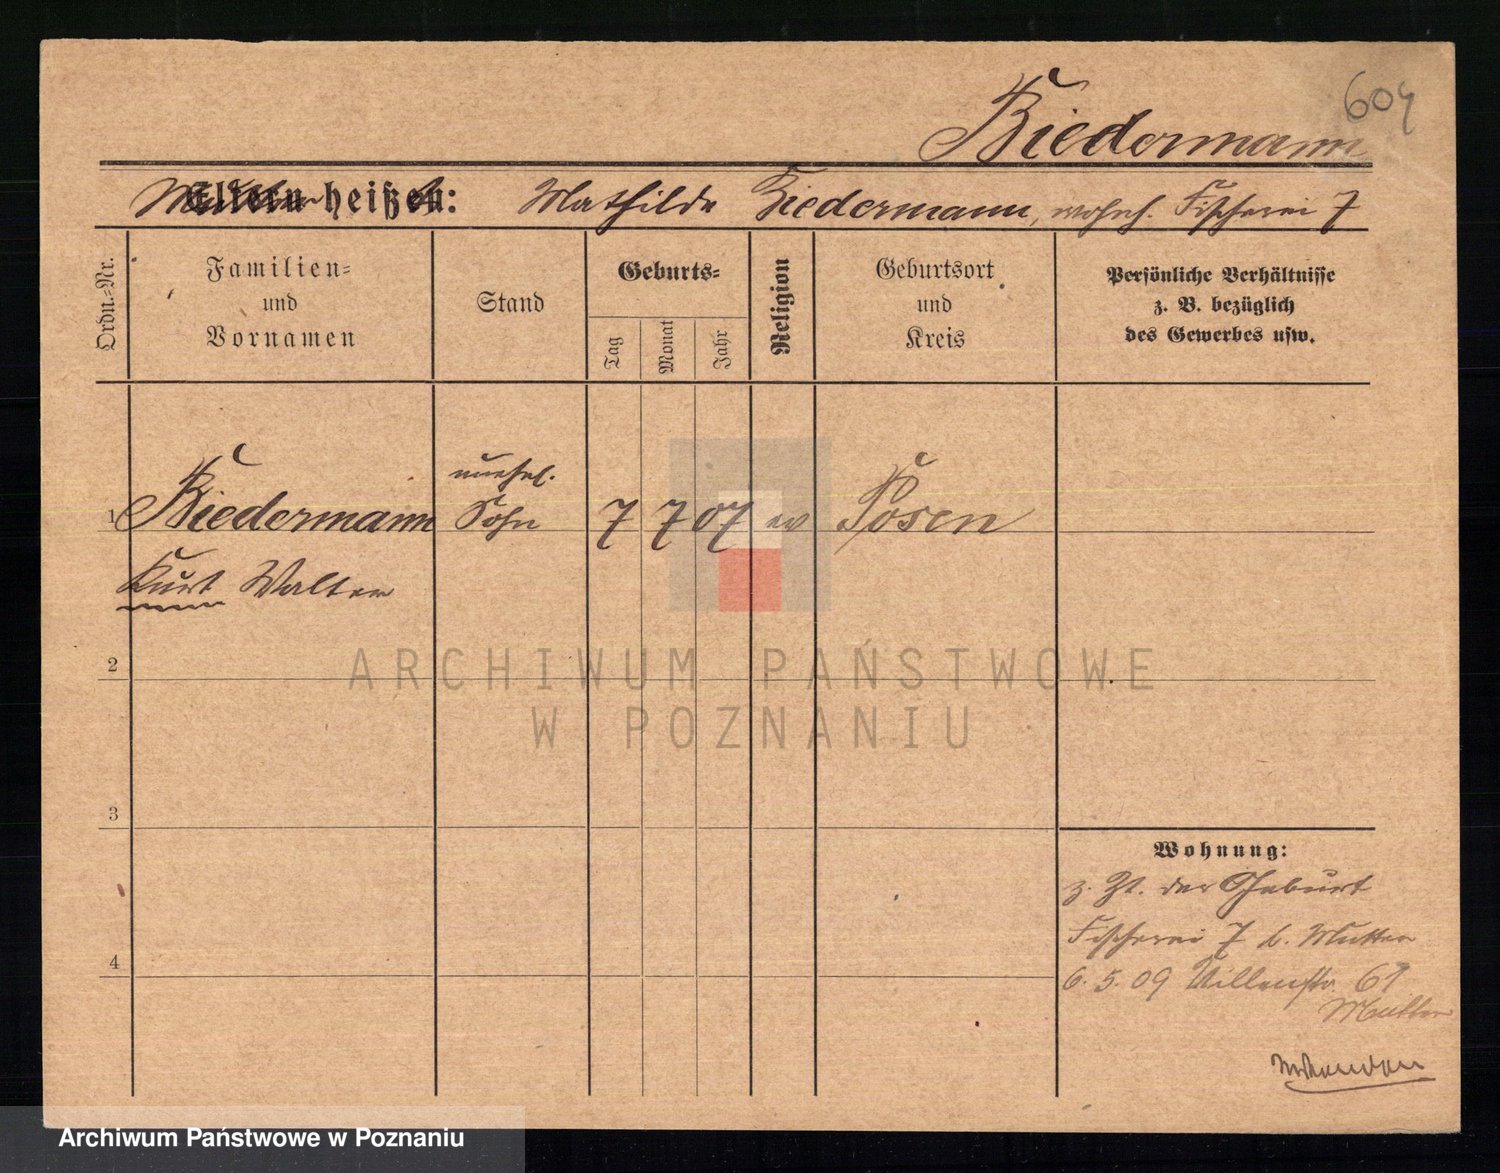 604
Biedermann
Mutter heißt: Mathilde Biedermann, wohnh. Fischerei 7
Eltern heißen:
Ordn.-Nr.
Familien-
und
Vornamen
Stand
Geburts-
Tag
Monat
Jahr
Religion
Geburtsort
und
Kreis
Persönliche Verhältnisse
z. B. bezüglich
des Gewerbes usw.
1 Biedermann unehel. Sohn 7 7 07 ev Posen
Kurt Walter
2
3
4
ARCHIWUM PAŃSTWOWE
W POZNANIU
Wohnung:
z. Zt. der Geburt
Fischerei 7 b. Mutter
6. 5. 09 Villenstr. 67
Mutter
Archiwum Państwowe w Poznaniu